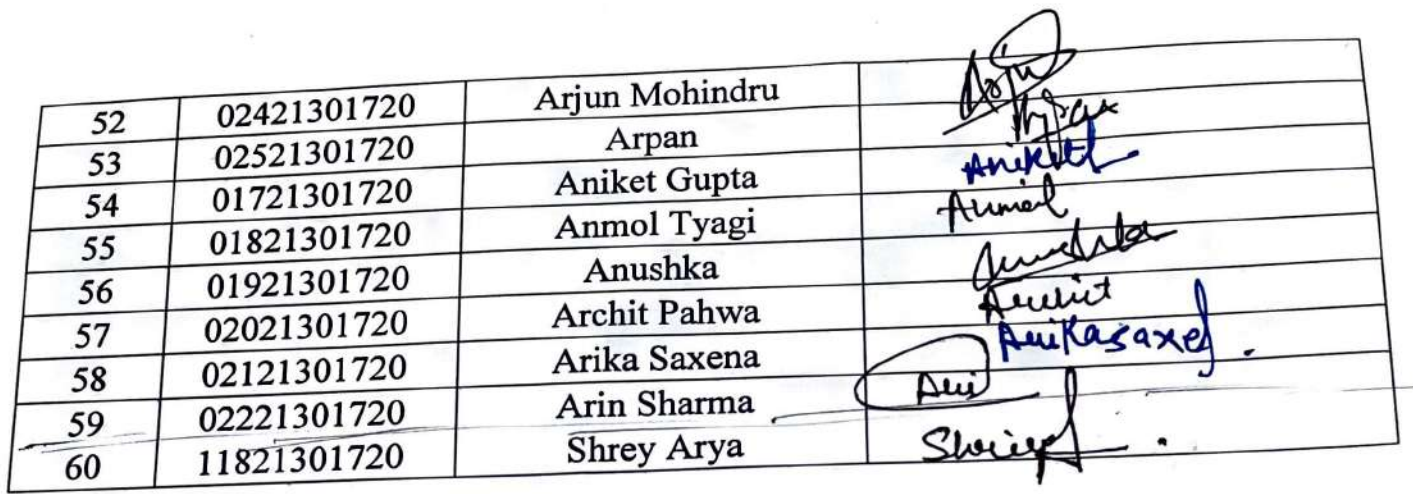 52 02421301720 Arjun Mohindru
53 02521301720 Arpan
54 01721301720 Aniket Gupta Aniket
55 01821301720 Anmol Tyagi Anmol
56 01921301720 Anushka Anushka
57 02021301720 Archit Pahwa Archit
58 02121301720 Arika Saxena
59 02221301720 Arin Sharma
60 11821301720 Shrey Arya